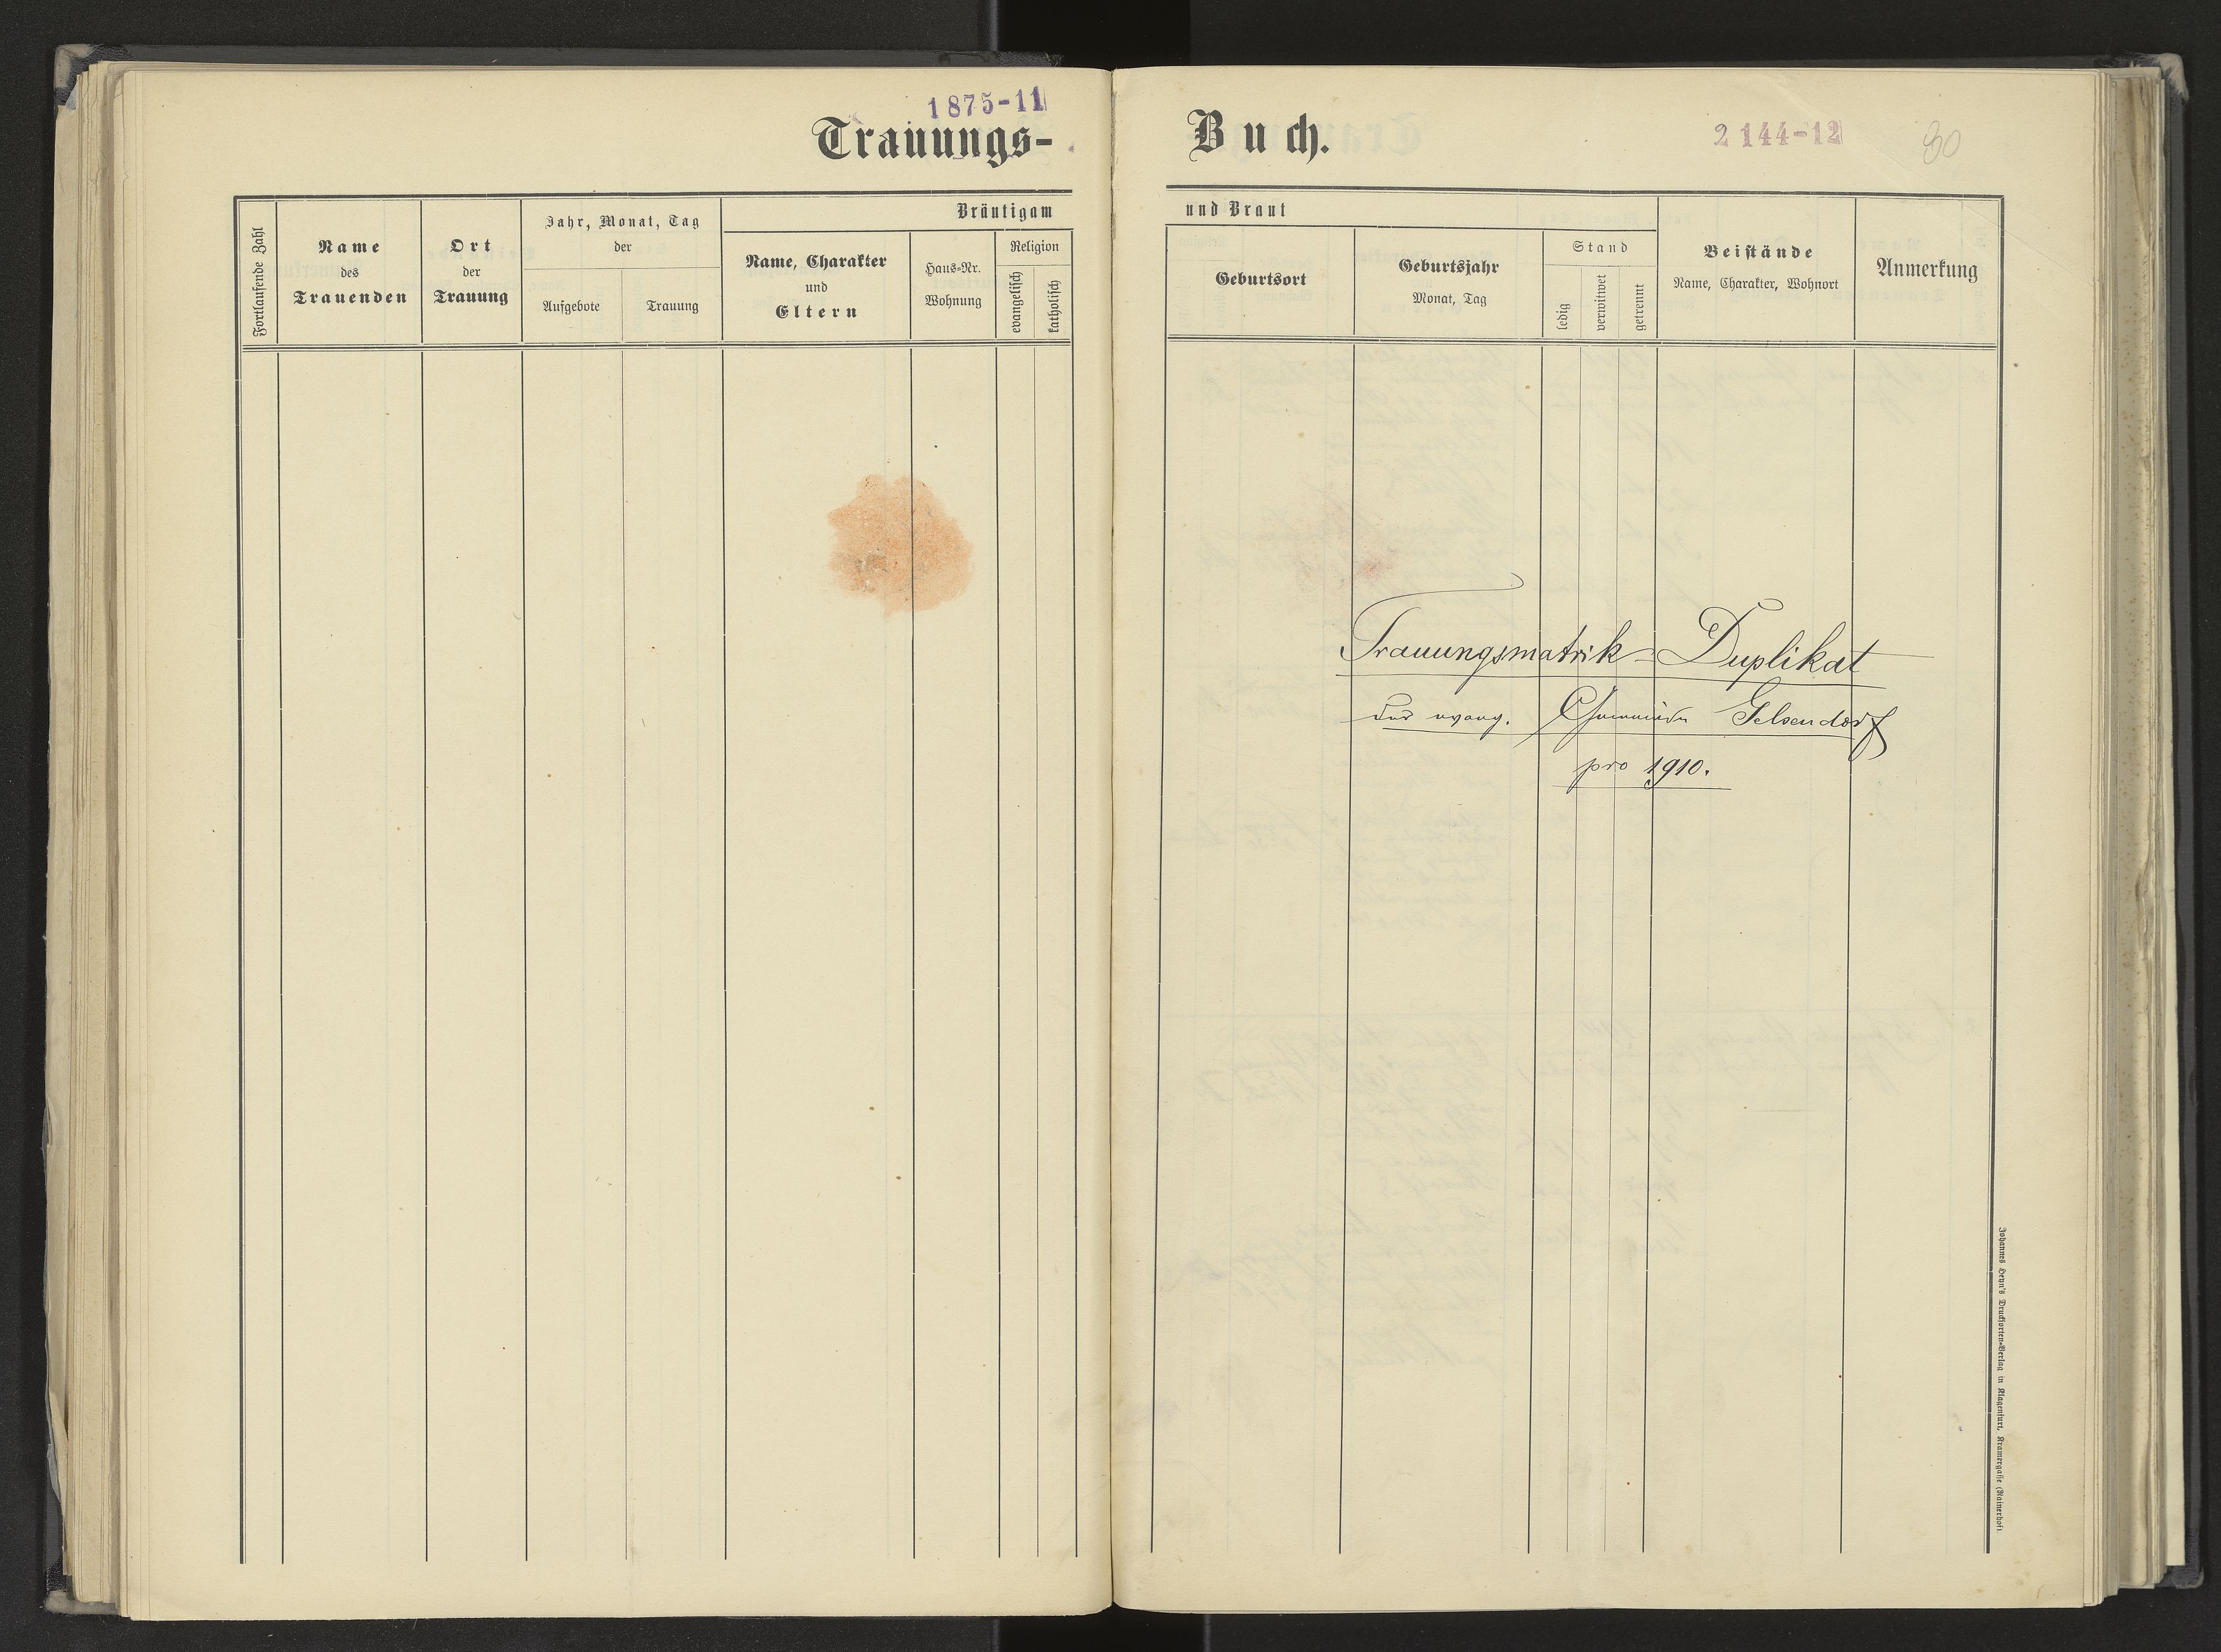 1875-11
Trauungs-
Fortlaufende Zahl
Name
des
Trauenden
Ort
der
Trauung
Jahr, Monat, Tag
der
Aufgebote
Trauung
Bräutigam
Name, Charakter
und
Eltern
Haus-Nr.
Wohnung
Religion
evangelisch
katholisch
Buch.
2144-12
80
und Braut
Geburtsort
Geburtsjahr
Monat, Tag
Stand
ledig
verwitwet
getrennt
Beistände
Name, Charakter, Wohnort
Anmerkung
Trauungsmatrik-Duplikat
der evang. Gemeinde Gelsendorf
pro 1910.
Johannes Heyn's Drucksorten-Verlag in Klagenfurt, Kramergasse (Rainerhof).